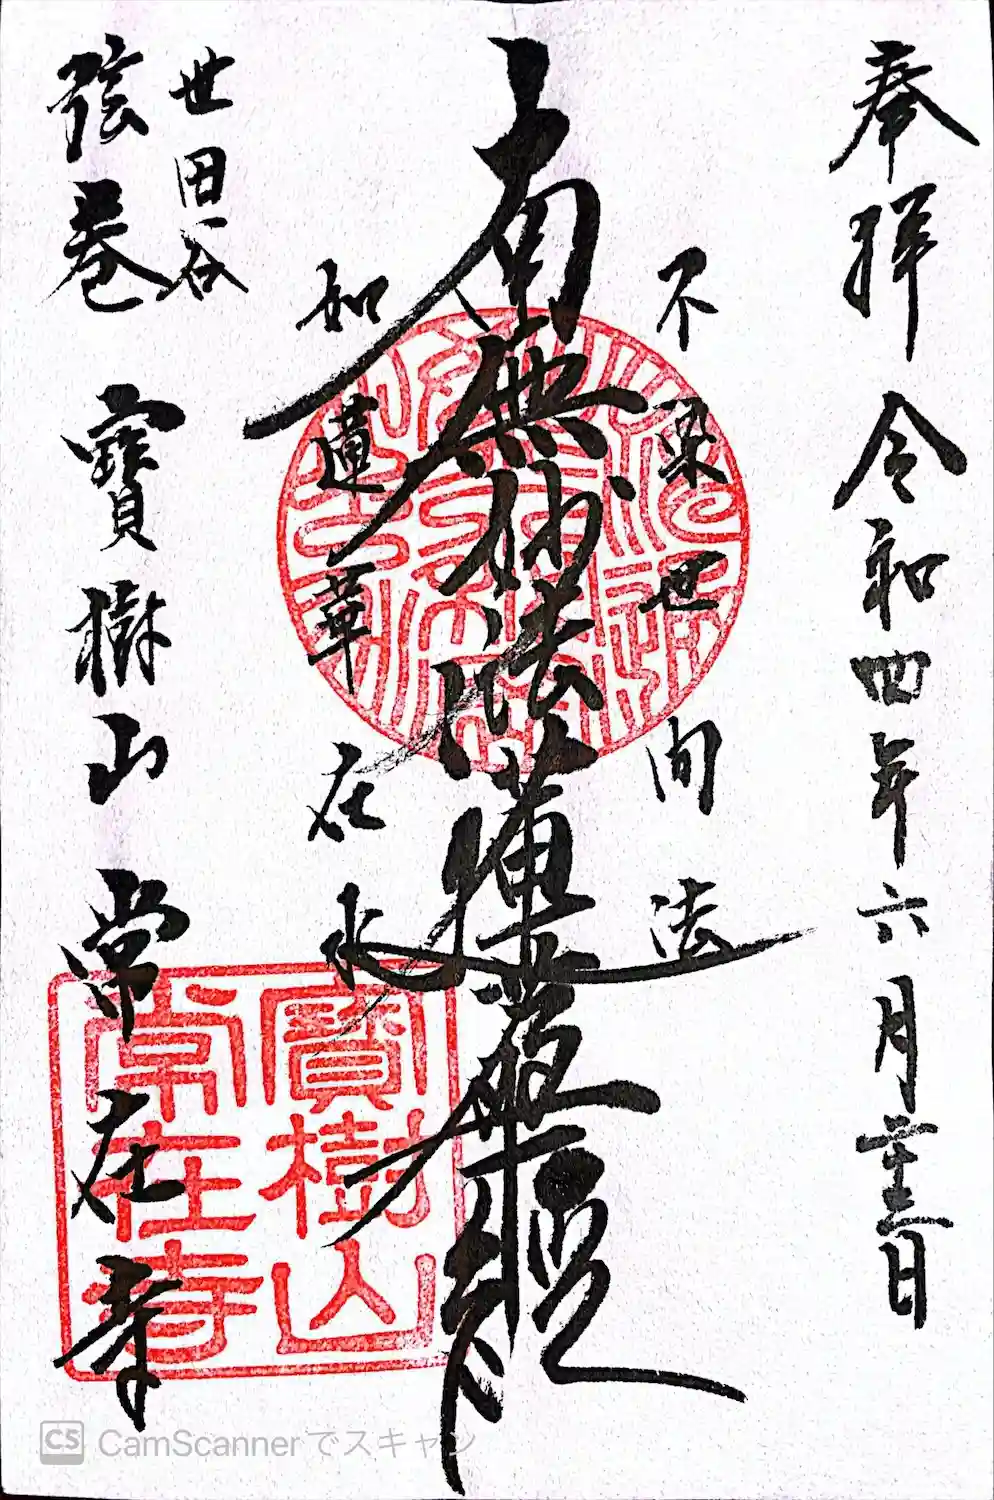 奉拝 令和四年六月二十三日
不染世間法
南無妙法蓮華経
如蓮華在水
世田谷
弦巻 寶樹山 常在寺
寶樹山
常在寺
CS CamScannerでスキャン